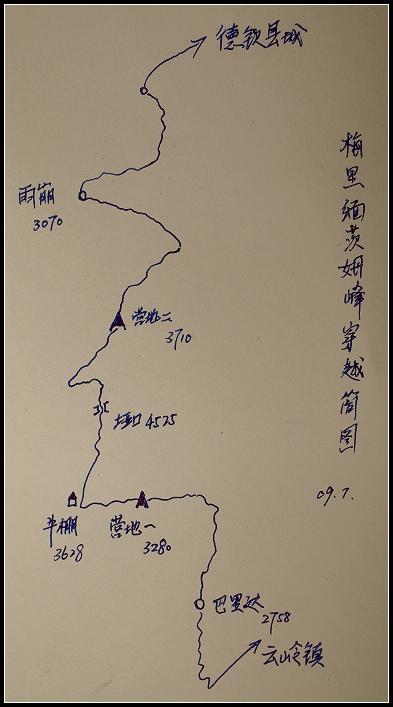 德钦县城
梅里缅茨姆峰穿越简图
09.7.
雨崩
3070
营地二
3710
垭口 4525
牛棚
3628
营地一
3280
巴里达
2758
云岭镇